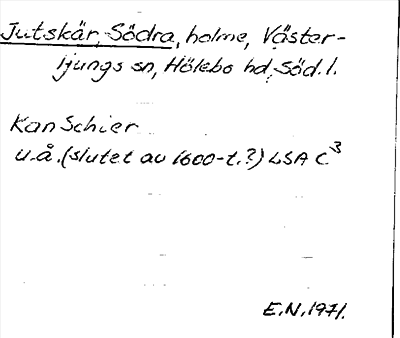 Jutskär, Södra, holme, Väster-
ljungs sn, Hölebo hd, Söd. l.
Kan Schier
u.å. (slutet av 1600-t.?) LSA C3
E.N. 1971.